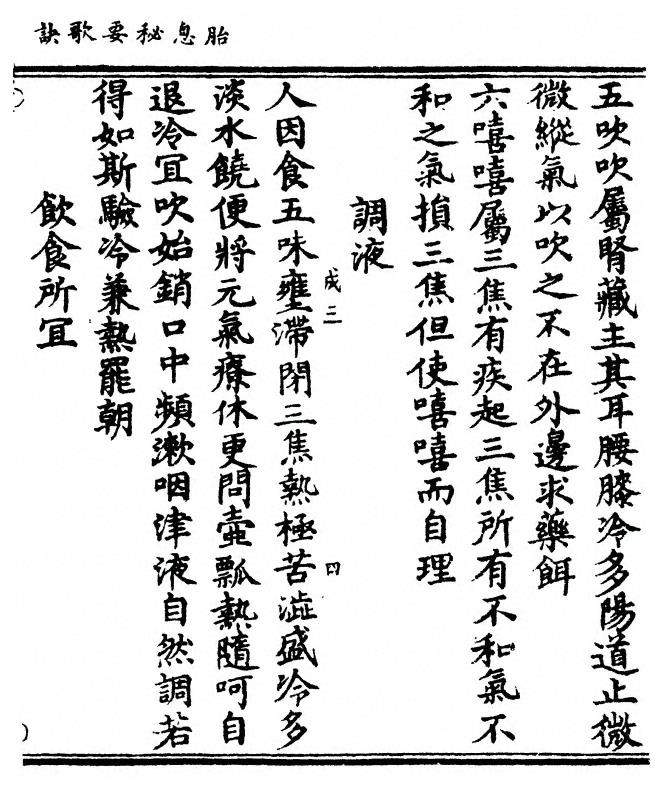 胎息秘要歌訣
五吹吹屬腎藏主其耳腰膝冷多陽道止微
微縱氣以吹之不在外邊求藥餌
六嘻嘻屬三焦有疾起三焦所有不和氣不
和之氣損三焦但使嘻嘻而自理
調液
人因食五味壅滯閉三焦熱極苦澁盛冷多
成三 四
淡水饒便將元氣療休更問壺瓢熱隨呵自
退冷冝吹始銷口中頻漱咽津液自然調若
得如斯驗冷兼熱罷朝
飲食所冝